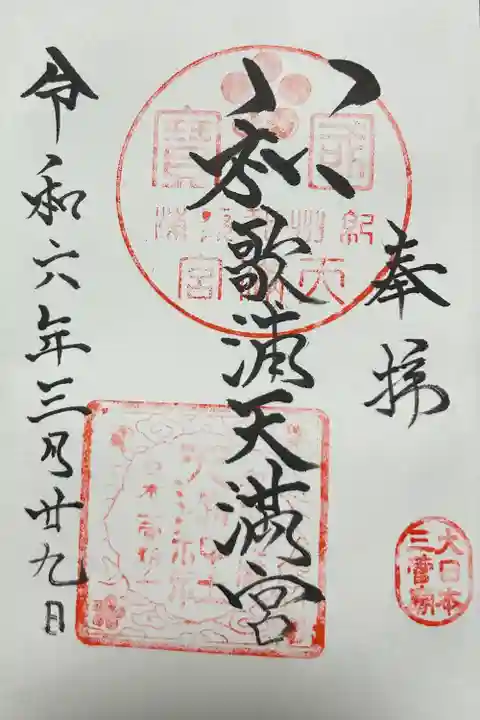 奉拝
國寶
紀州
天満宮
和歌浦天満宮
大日本
三菅廟
令和六年三月廿九日